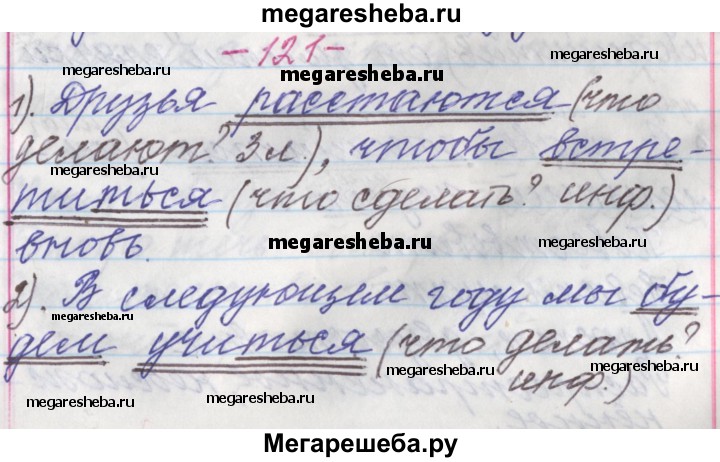 megaresheba.ru
- 121 -
megaresheba.ru
megaresheba.ru
megaresheba.ru
1). Друзья расстаются (что
делают? 3 л.), чтобы встре-
megaresheba.ru
megaresheba.ru
титься (что сделать? инф.)
megaresheba.ru
megaresheba.ru
вновь.
2). В следующем году мы бу-
megaresheba.ru
megaresheba.ru
дем учиться (что делать?
инф.)
megaresheba.ru
megaresheba.ru
megaresheba.ru
Мегарешеба.ру